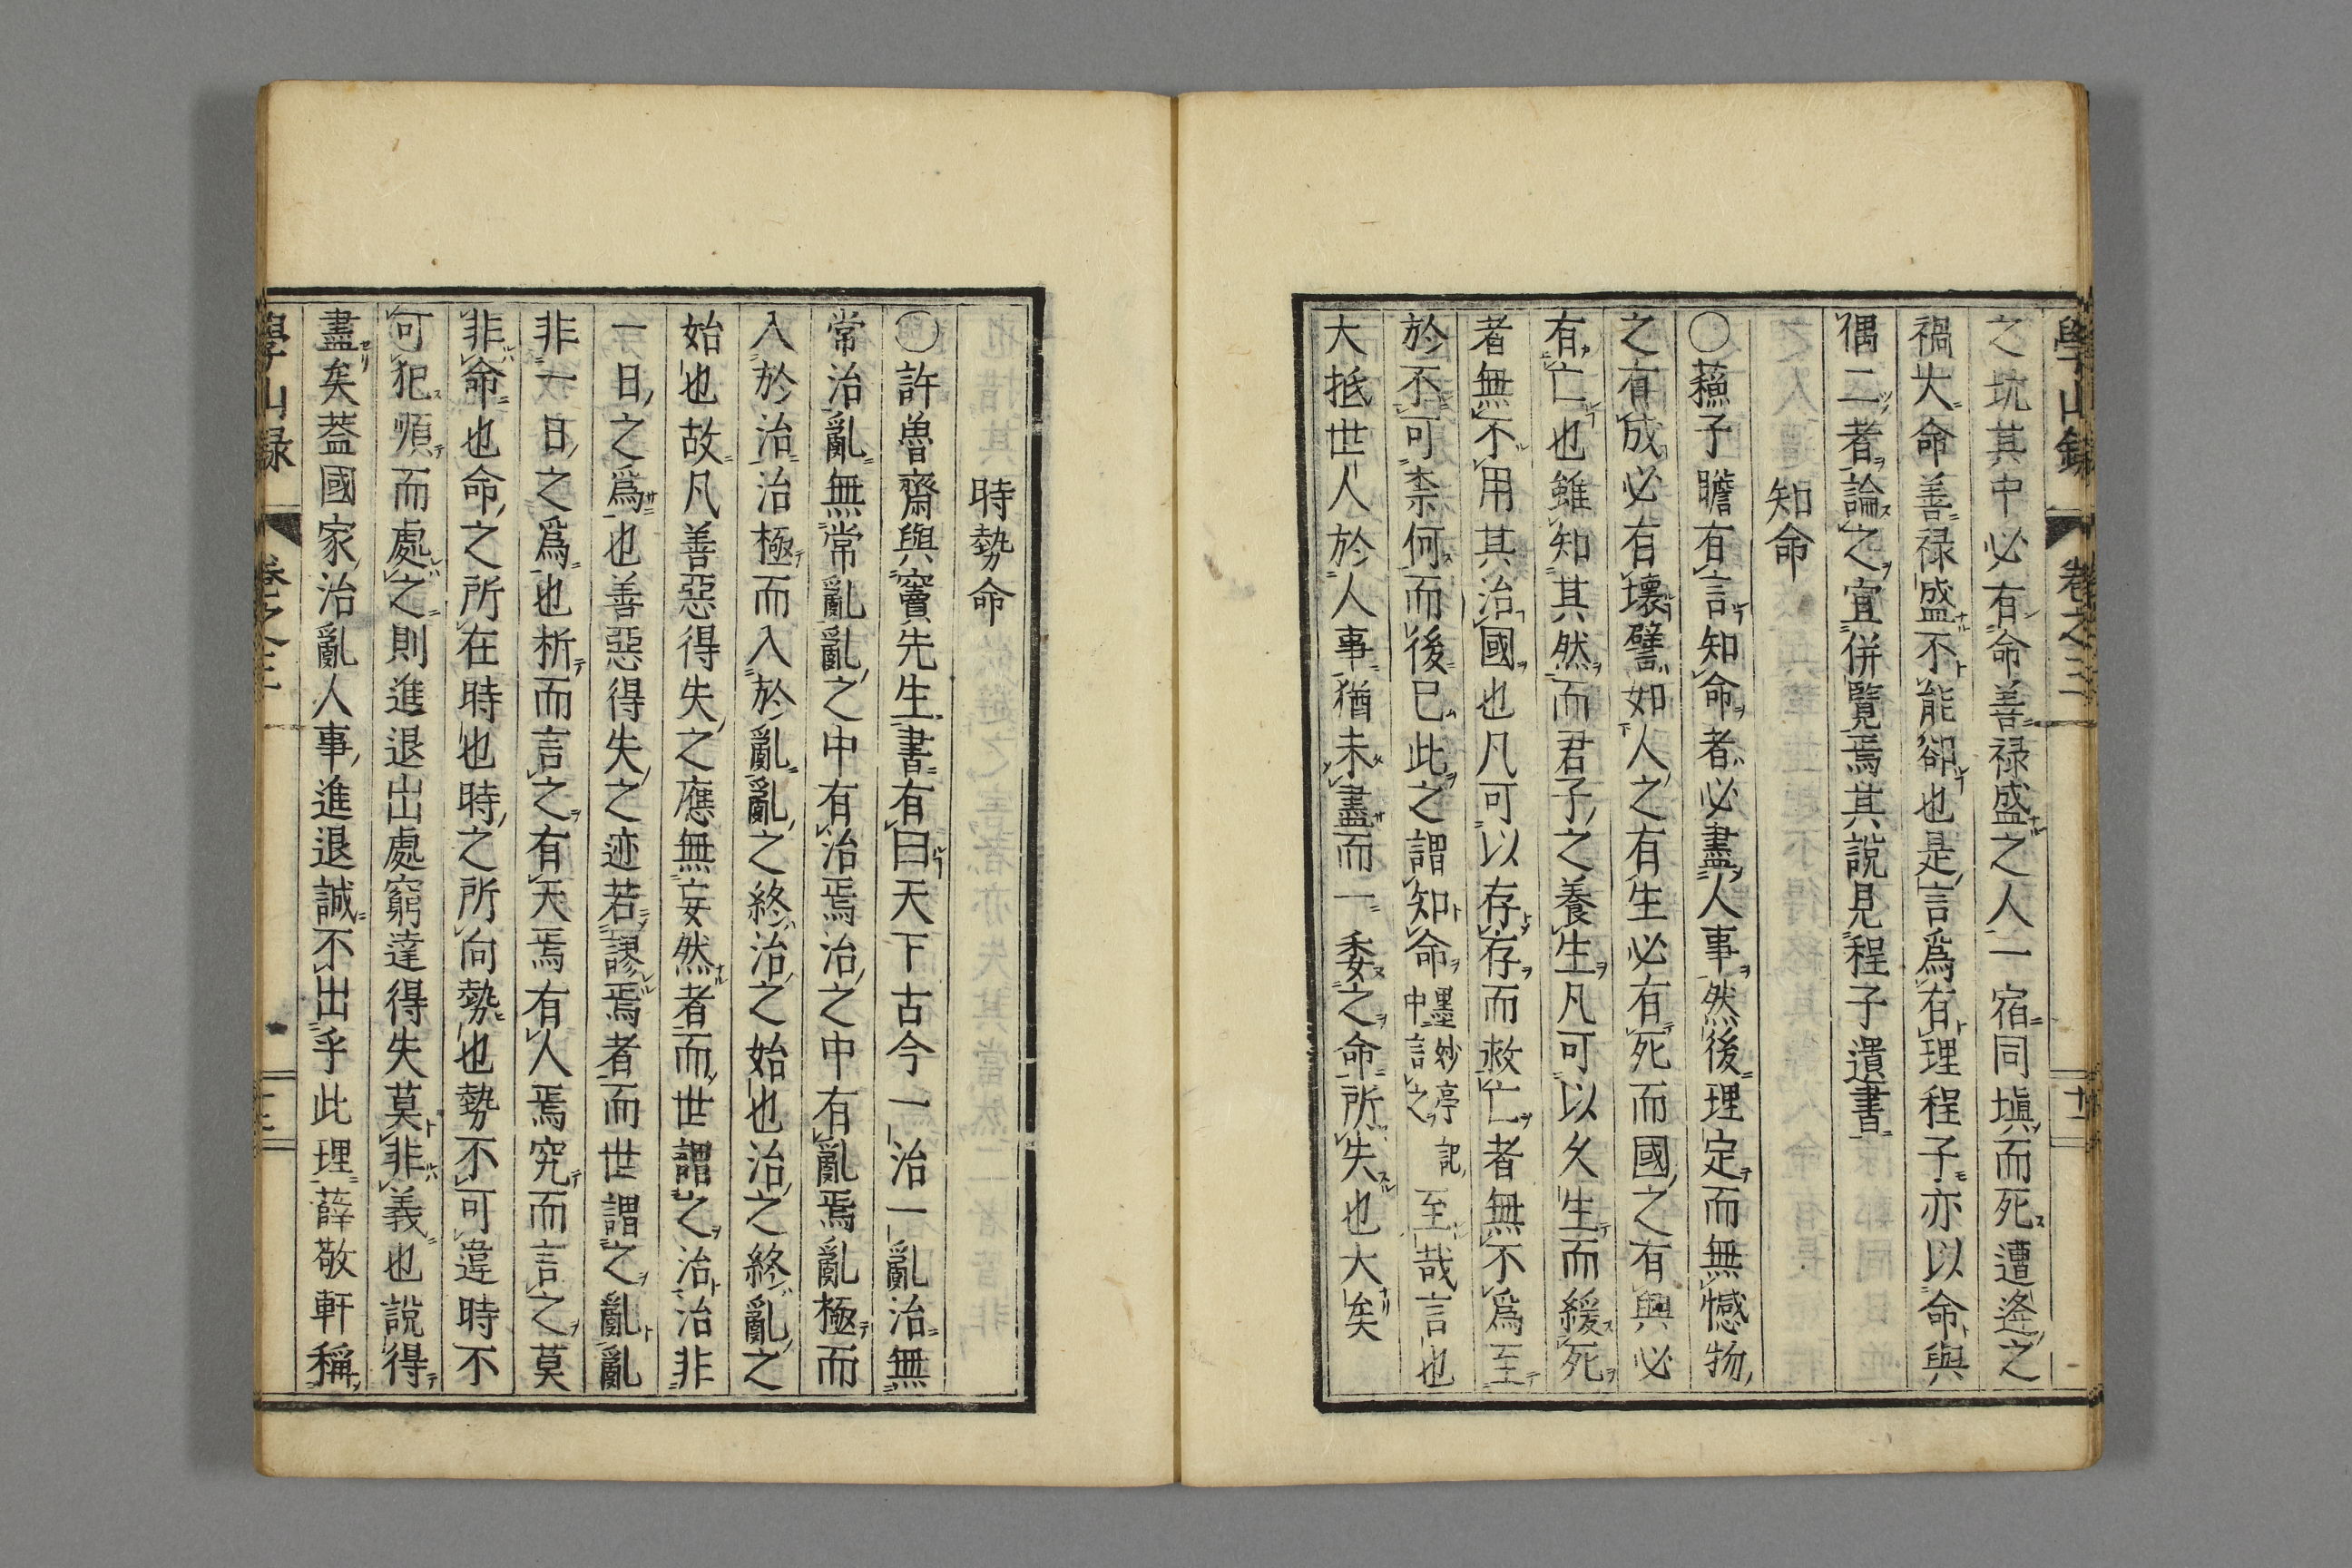 學山錄 卷之三 十二
之坑其中必有命善祿盛之人一宿同塡而死遭逢之
禍大命善祿盛不能卻也是言爲有理程子亦以命與
偶二者論之宜併覽焉其說見程子遺書
知命
〇蘓子瞻有言知命者必盡人事然後理定而無憾物
之有成必有壞譬如人之有生必有死而國之有興必
有亡也雖知其然而君子之養生凡可以久生而緩死
者無不用其治國也凡可以存存而救亡者無不爲至
於不可柰何而後已此之謂知命墨妙亭記中言之至哉言也
大抵世人於人事猶未盡而一委之命所失也大矣
時勢命
〇許魯齋與竇先生書有曰天下古今一治一亂治無
常治亂無常亂亂之中有治焉治之中有亂焉亂極而
入於治治極而入於亂亂之終治之始也治之終亂之
始也故凡善惡得失之應無妄然者而世謂之治治非
一日之爲也善惡得失之迹若謬焉者而世謂之亂亂
非一日之爲也析而言之有天焉有人焉究而言之莫
非命也命之所在時也時之所向勢也勢不可違時不
可犯順而處之則進退出處窮達得失莫非義也說得
盡矣葢國家治亂人事進退誠不出乎此理薛敬軒稱
學山錄 卷之三